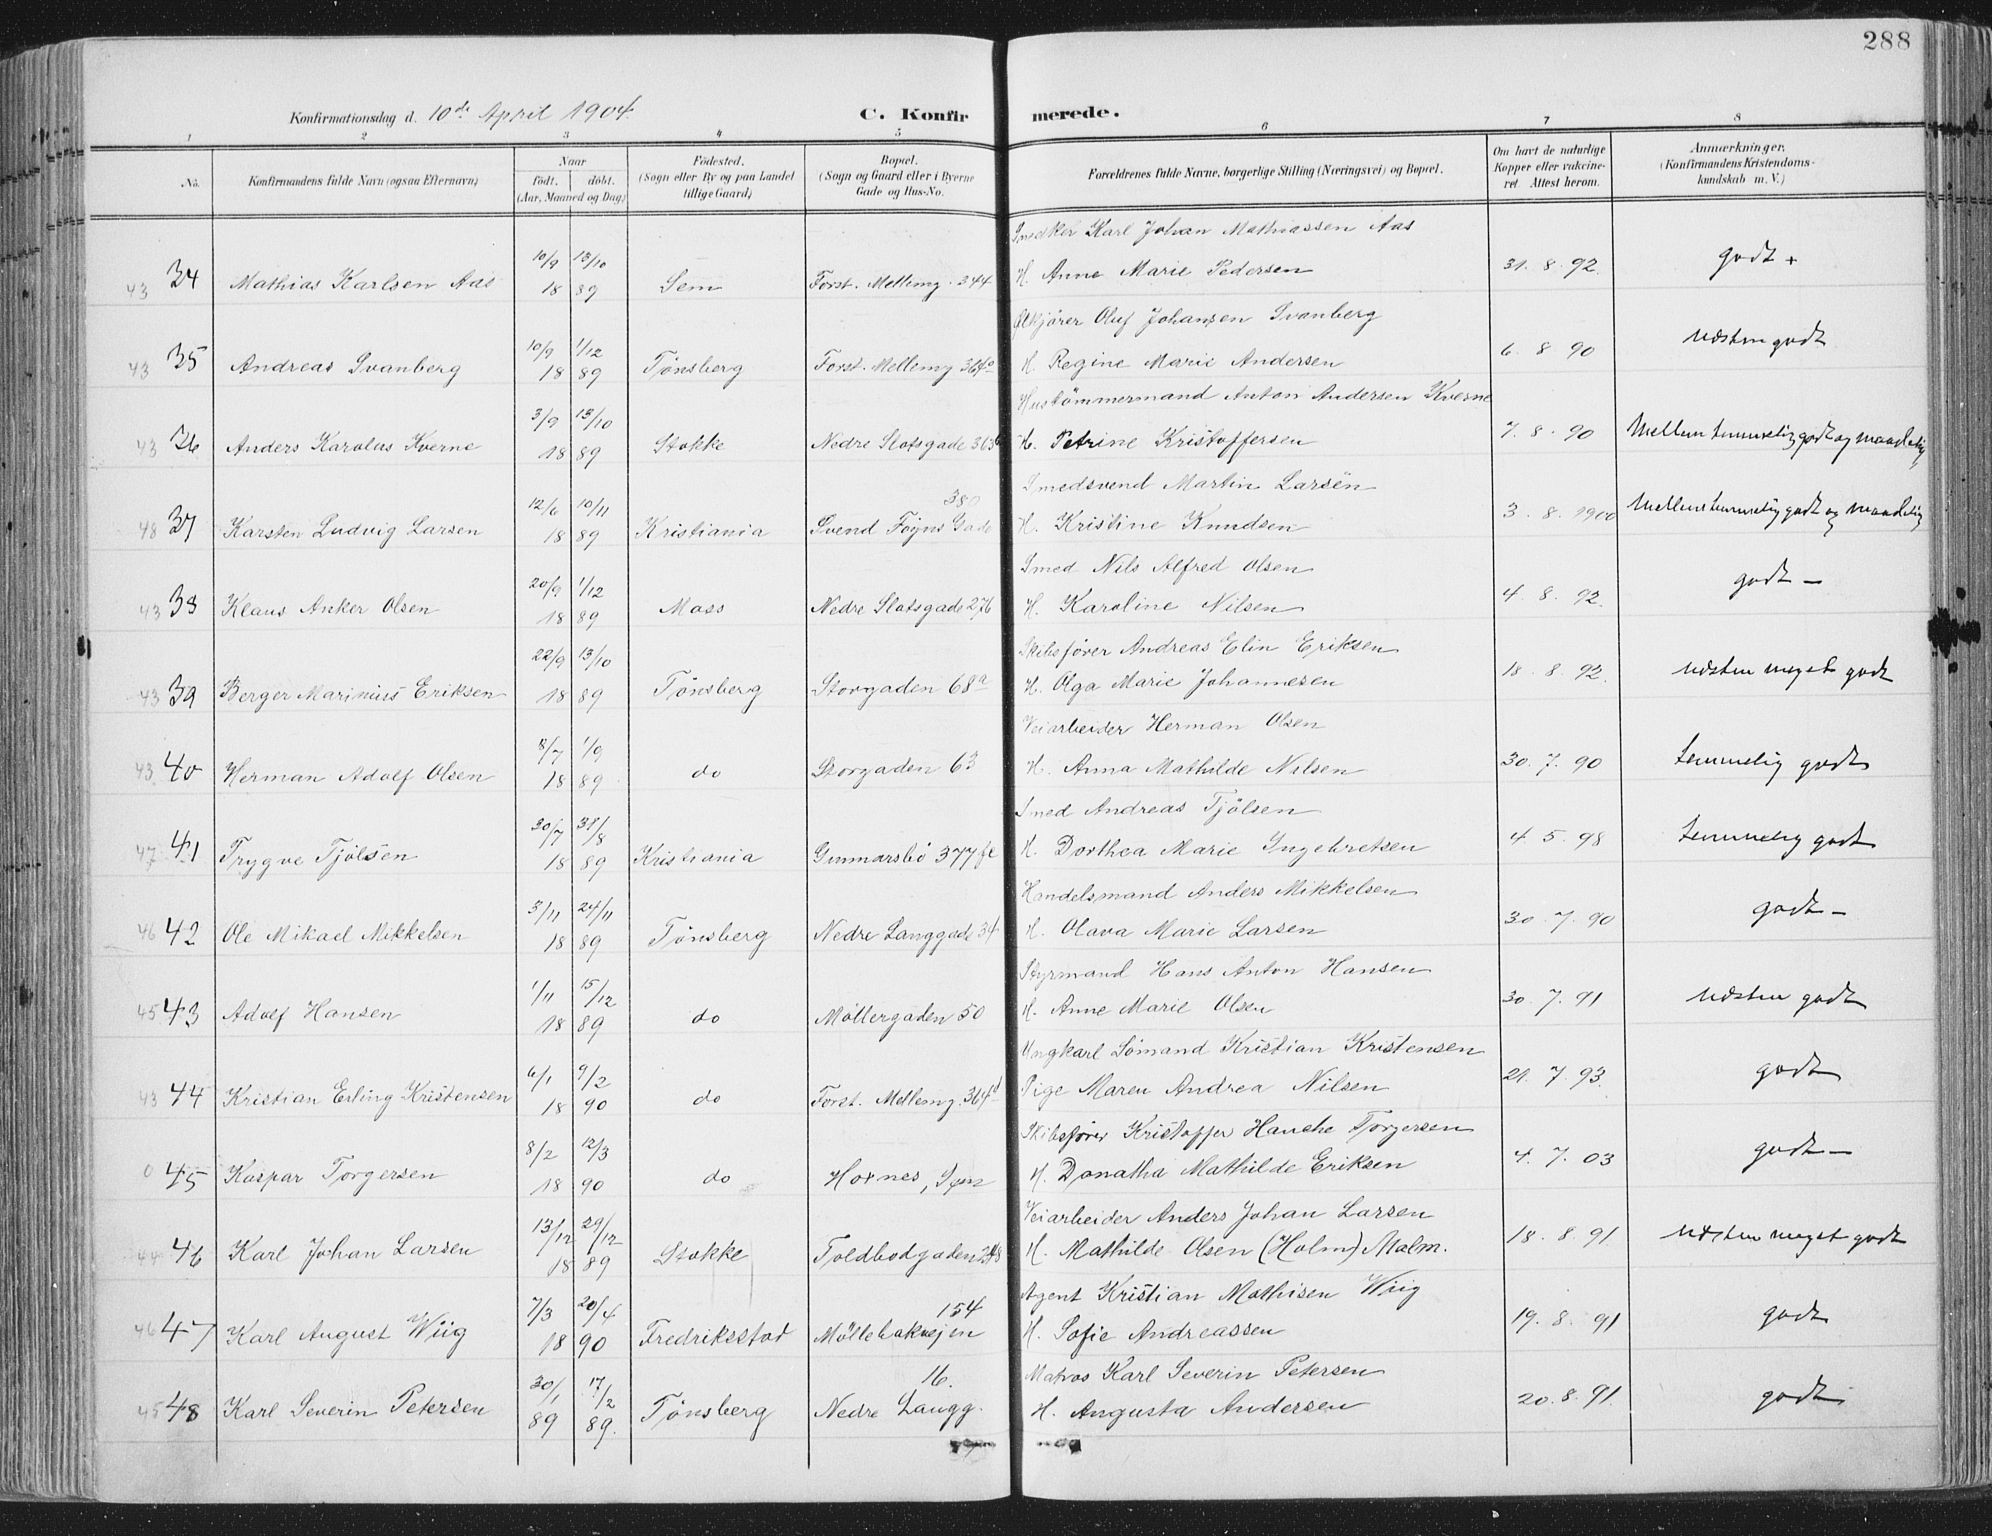 288
Konfirmationsdag d. 10de April 1904.
C. Konfirmerede.
1 2 3 4 5 6 7 8
No. Konfirmandens fulde Navn (ogsaa Efternavn) Naar født. døbt. (Aar, Maaned og Dag) Fødested. (Sogn eller By og paa Landet tillige Gaard) Bopæl. (Sogn og Gaard eller i Byerne Gade og Hus-No. Forældrenes fulde Navne, borgerlige Stilling (Næringsvei) og Bopæl. Om havt de naturlige Kopper eller vakcineret. Attest herom. Anmærkninger. (Konfirmandens Kristendomskundskab m. V.)
43 34 Mathias Karlsen Aas 10/9 1889 13/10 89 Sem Forst. Mellemg. 344 Snedker Karl Johan Mathiassen Aas
H. Anne Marie Pedersen 31. 8. 92. godt +
43 35 Andreas Svanberg 10/9 18 1/12 89 Tønsberg Forst. Mellemg 364a Ølkjører Oluf Johansen Svanberg
H. Regine Marie Andersen 6. 8. 90 næsten godt
43 36 Anders Karolus Kverne 3/9 18 13/10 89 Stokke Nedre Slotsgade 363 Hustømmermand Anton Andersen Kverne
H. Petrine Kristoffersen 7. 8. 90 Mellem temmelig godt og maadelig
48 37 Karsten Ludvig Larsen 12/6 18 10/11 89 Kristiania Svend Föyns Gade 380 Smedsvend Martin Larsen
H. Kristine Knudsen 3. 8. 1900 Mellem temmelig godt og maadelig
43 38 Klaus Anker Olsen 20/9 18 1/12 89 Moss Nedre Slotsgade 276 Smed Nils Alfred Olsen
H. Karoline Nilsen 4. 8. 92. godt –
43 39 Berger Marinius Eriksen 22/9 18 13/10 89 Tønsberg Storgaden 68a Skibsfører Andreas Elin Eriksen
H. Olga Marie Johannesen 18. 8. 92. næsten meget godt
43 40 Herman Adolf Olsen 8/7 18 1/9 89 do Storgaden 63 Veiarbeider Herman Olsen
H. Anna Mathilde Nilsen 30. 7. 90 temmelig godt
47 41 Trygve Tjølsen 30/7 18 31/8 89 Kristiania Gunnarsbö 377 Smed Andreas Tjølsen
H. Dorthea Marie Ingebretsen 4. 5. 98 temmelig godt
46 42 Ole Mikael Mikkelsen 3/11 18 24/11 89 Tönsberg Nedre Langgade 34 Handelsmand Anders Mikkelsen
H. Olava Marie Larsen 30. 7. 90 godt –
45 43 Adolf Hansen 1/11 18 15/12 89 do Møllergaden 50 Styrmand Hans Anton Hansen
H. Anne Marie Olsen 30. 7. 91 næsten godt
43 44 Kristian Erling Kristensen 6/1 18 9/2 90 do Forst. Mellemg. 364d Ungkarl Sømand Kristian Kristensen
Pige Maren Andrea Nilsen 21. 7. 93. godt
0 45 Kaspar Torgersen 8/2 18 12/3 90 do Hoxnes, Sem Skibsfører Kristoffer Hanche Torgersen
H. Donatha Mathilde Eriksen 4. 7. 03 godt –
44 46 Karl Johan Larsen 13/12 18 29/12 89 Stokke Toldbodgaden Veiarbeider Anders Johan Larsen
H. Mathilde Olsen (Holm) Malm. 18. 8. 91 næsten meget godt
46 47 Karl August Wiig 7/3 18 20/4 90 Fredriksstad Møllebakvejen 154 Agent Kristian Mathisen Wiig
H. Sofie Andreassen 19. 8. 91 godt
45 48 Karl Severin Petersen 30/1 89 17/2 89. Tønsberg Nedre Langg. 16. Matros Karl Severin Petersen
H. Augusta Andersen 20. 8. 91. godt